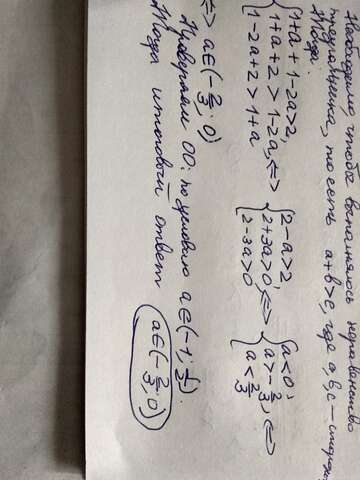 Необходимо, чтобы выполнялось неравенство
треугольника, то есть a+b>c, где a,b,c – стороны
Тогда:
{1+a+1-2a>2, {2-a>2, {a<0,
1+a+2>1-2a, <=> 2+3a>0, <=> a>-2/3, <=>
1-2a+2>1+a 2-3a>0 a<2/3
<=> a∈(-2/3; 0)
Проверяем ОО: по условию a∈(-1; 1/2)
Тогда итоговый ответ a∈(-2/3; 0)